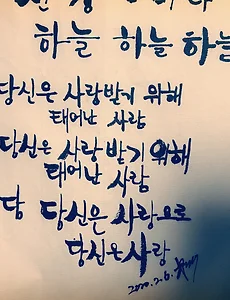 하늘 하늘 하늘
당신은 사랑받기 위해
태어난 사람
당신은 사랑 받기 위해
태어난 사람
당 당신은 사랑으로
당신은 사랑
2020.2.6.